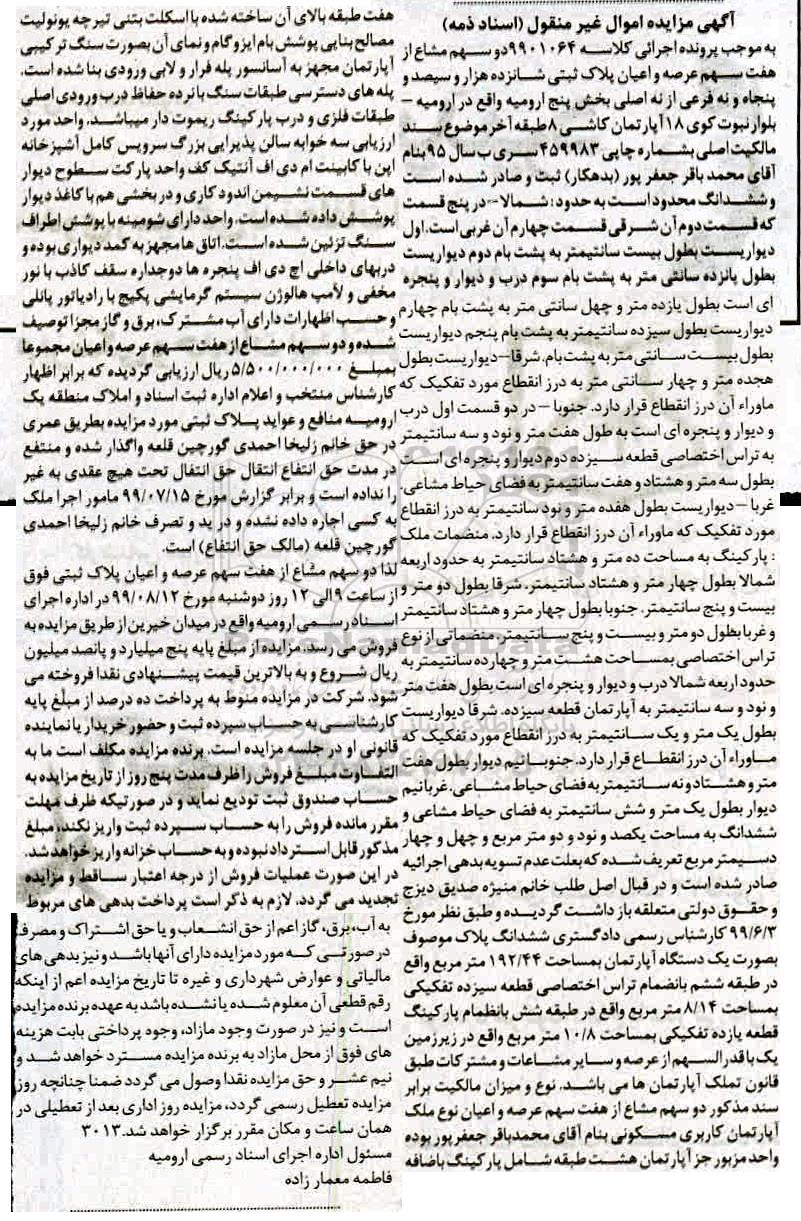 آگهی مزایده اموال غیر منقول (اسناد ذمه)
به موجب پرونده اجرائی کلاسه ۹۹۰۱۰۶۴ دو سهم مشاع از
هفت سهم عرصه و اعیان پلاک ثبتی شانزده هزار و سیصد و
پنجاه و نه فرعی از نه اصلی بخش پنج ارومیه واقع در ارومیه –
بلوار نبوت کوی ۱۸ آپارتمان کاشی ۸ طبقه آخر موضوع سند
مالکیت اصلی بشماره چاپی ۴۵۹۹۸۳ سری ب سال ۹۵ بنام
آقای محمد باقر جعفر پور (بدهکار) ثبت و صادر شده است
و ششدانگ محدود است به حدود: شمالا – در پنج قسمت
که قسمت دوم آن شرقی قسمت چهارم آن غربی است. اول
دیواریست بطول بیست سانتیمتر به پشت بام دوم دیواریست
بطول پانزده سانتی متر به پشت بام سوم درب و دیوار و پنجره
ای است بطول یازده متر و چهل سانتی متر به پشت بام چهارم
دیواریست بطول سیزده سانتیمتر به پشت بام پنجم دیواریست
بطول بیست سانتی متر به پشت بام. شرقا – دیواریست بطول
هجده متر و چهار سانتی متر به درز انقطاع مورد تفکیک که
ماوراء آن درز انقطاع قرار دارد. جنوبا – در دو قسمت اول درب
و دیوار و پنجره ای است به طول هفت متر و نود و سه سانتیمتر
به تراس اختصاصی قطعه سیزده دوم دیوار و پنجره ای است
بطول سه متر و هشتاد و هفت سانتیمتر به فضای حیاط مشاعی.
غربا – دیواریست بطول هفده متر و نود سانتیمتر به درز انقطاع
مورد تفکیک که ماوراء آن درز انقطاع قرار دارد. منضمات ملک
: پارکینگ به مساحت ده متر و هشتاد سانتیمتر به حدود اربعه
شمالا بطول چهار متر و هشتاد سانتیمتر. شرقا بطول دو متر و
بیست و پنج سانتیمتر. جنوبا بطول چهار متر و هشتاد سانتیمتر
و غربا بطول دو متر و بیست و پنج سانتیمتر. منضماتی از نوع
تراس اختصاصی بمساحت هشت متر و چهارده سانتیمتر به
حدود اربعه شمالا درب و دیوار و پنجره ای است بطول هفت متر
و نود و سه سانتیمتر به آپارتمان قطعه سیزده. شرقا دیواریست
بطول یک متر و یک سانتیمتر به درز انقطاع مورد تفکیک که
ماوراء آن درز انقطاع قرار دارد. جنوبا نیم دیوار بطول هفت
متر و هشتاد و نه سانتیمتر به فضای حیاط مشاعی. غربا نیم
دیوار بطول یک متر و شش سانتیمتر به فضای حیاط مشاعی و
ششدانگ به مساحت یکصد و نود و دو متر مربع و چهل و چهار
دسیمتر مربع تعریف شده که بعلت عدم تسویه بدهی اجرائیه
صادر شده است و در قبال اصل طلب خانم منیژه صدیق دیزج
و حقوق دولتی متعلقه باز داشت گردیده و طبق نظر مورخ
۹۹/۶/۳ کارشناس رسمی دادگستری ششدانگ پلاک موصوف
بصورت یک دستگاه آپارتمان بمساحت ۱۹۲/۴۴ متر مربع واقع
در طبقه ششم بانضمام تراس اختصاصی قطعه سیزده تفکیکی
بمساحت ۸/۱۴ متر مربع واقع در طبقه شش بانظمام پارکینگ
قطعه یازده تفکیکی بمساحت ۱۰/۸ متر مربع واقع در زیرزمین
یک باقدرالسهم از عرصه و سایر مشاعات و مشترکات طبق
قانون تملک آپارتمان ها می باشد. نوع و میزان مالکیت برابر
سند مذکور دو سهم مشاع از هفت سهم عرصه و اعیان نوع ملک
آپارتمان کاربری مسکونی بنام آقای محمدباقر جعفرپور بوده
واحد مزبور جز آپارتمان هشت طبقه شامل پارکینگ باضافه
هفت طبقه بالای آن ساخته شده با اسکلت بتنی تیرچه یونولیت
مصالح بنایی پوشش بام ایزوگام و نمای آن بصورت سنگ ترکیبی
آپارتمان مجهز به آسانسور پله فرار و لابی ورودی بنا شده است.
پله های دسترسی طبقات سنگ با نرده حفاظ درب ورودی اصلی
طبقات فلزی و درب پارکینگ ریموت دار میباشد. واحد مورد
ارزیابی سه خوابه سالن پذیرایی بزرگ سرویس کامل آشپزخانه
اپن با کابینت ام دی اف آنتیک کف واحد پارکت سطوح دیوار
های قسمت نشیمن اندود کاری و در بخشی هم با کاغذ دیوار
پوشش داده شده است. واحد دارای شومینه با پوشش اطراف
سنگ تزئین شده است. اتاق ها مجهز به کمد دیواری بوده و
دربهای داخلی اچ دی اف پنجره ها دوجداره سقف کاذب با نور
مخفی و لامپ هالوژن سیستم گرمایشی پکیج با رادیاتور پانلی
و حسب اظهارات دارای آب مشترک، برق و گاز مجزا توصیف
شده و دو سهم مشاع از هفت سهم عرصه و اعیان مجموعا
بمبلغ ۵/۵۰۰/۰۰۰/۰۰۰ ریال ارزیابی گردیده که برابر اظهار
کارشناس منتخب و اعلام اداره ثبت اسناد و املاک منطقه یک
ارومیه منافع و عواید پلاک ثبتی مورد مزایده بطریق عمری
در حق خانم زلیخا احمدی گورچین قلعه واگذار شده و منتفع
در مدت حق انتفاع انتقال حق انتفال تحت هیچ عقدی به غیر
را نداده است و برابر گزارش مورخ ۹۹/۰۷/۱۵ مامور اجرا ملک
به کسی اجاره داده نشده و در ید و تصرف خانم زلیخا احمدی
گورچین قلعه (مالک حق انتفاع) است.
لذا دو سهم مشاع از هفت سهم عرصه و اعیان پلاک ثبتی فوق
از ساعت ۹ الی ۱۲ روز دوشنبه مورخ ۹۹/۰۸/۱۲ در اداره اجرای
اسناد رسمی ارومیه واقع در میدان خیرین از طریق مزایده به
فروش می رسد. مزایده از مبلغ پایه پنج میلیارد و پانصد میلیون
ریال شروع و به بالاترین قیمت پیشنهادی نقدا فروخته می
شود. شرکت در مزایده منوط به پرداخت ده درصد از مبلغ پایه
کارشناسی به حساب سپرده ثبت و حضور خریدار یا نماینده
قانونی او در جلسه مزایده است. برنده مزایده مکلف است ما به
التفاوت مبلغ فروش را ظرف مدت پنج روز از تاریخ مزایده به
حساب صندوق ثبت تودیع نماید و در صورتیکه ظرف مهلت
مقرر مانده فروش را به حساب سپرده ثبت واریز نکند، مبلغ
مذکور قابل استرداد نبوده و به حساب خزانه واریز خواهد شد.
در این صورت عملیات فروش از درجه اعتبار ساقط و مزایده
تجدید می گردد. لازم به ذکر است پرداخت بدهی های مربوط
به آب، برق، گاز اعم از حق انشعاب و یا حق اشتراک و مصرف
در صورتی که مورد مزایده دارای آنها باشد و نیز بدهی های
مالیاتی و عوارض شهرداری و غیره تا تاریخ مزایده اعم از اینکه
رقم قطعی آن معلوم شده یا نشده باشد به عهده برنده مزایده
است و نیز در صورت وجود مازاد، وجوه پرداختی بابت هزینه
های فوق از محل مازاد به برنده مزایده مسترد خواهد شد و
نیم عشر و حق مزایده نقدا وصول می گردد ضمنا چنانچه روز
مزایده تعطیل رسمی گردد، مزایده روز اداری بعد از تعطیلی در
همان ساعت و مکان مقرر برگزار خواهد شد. ۳۰۱۳
مسئول اداره اجرای اسناد رسمی ارومیه
فاطمه معمار زاده
ParsNamadData